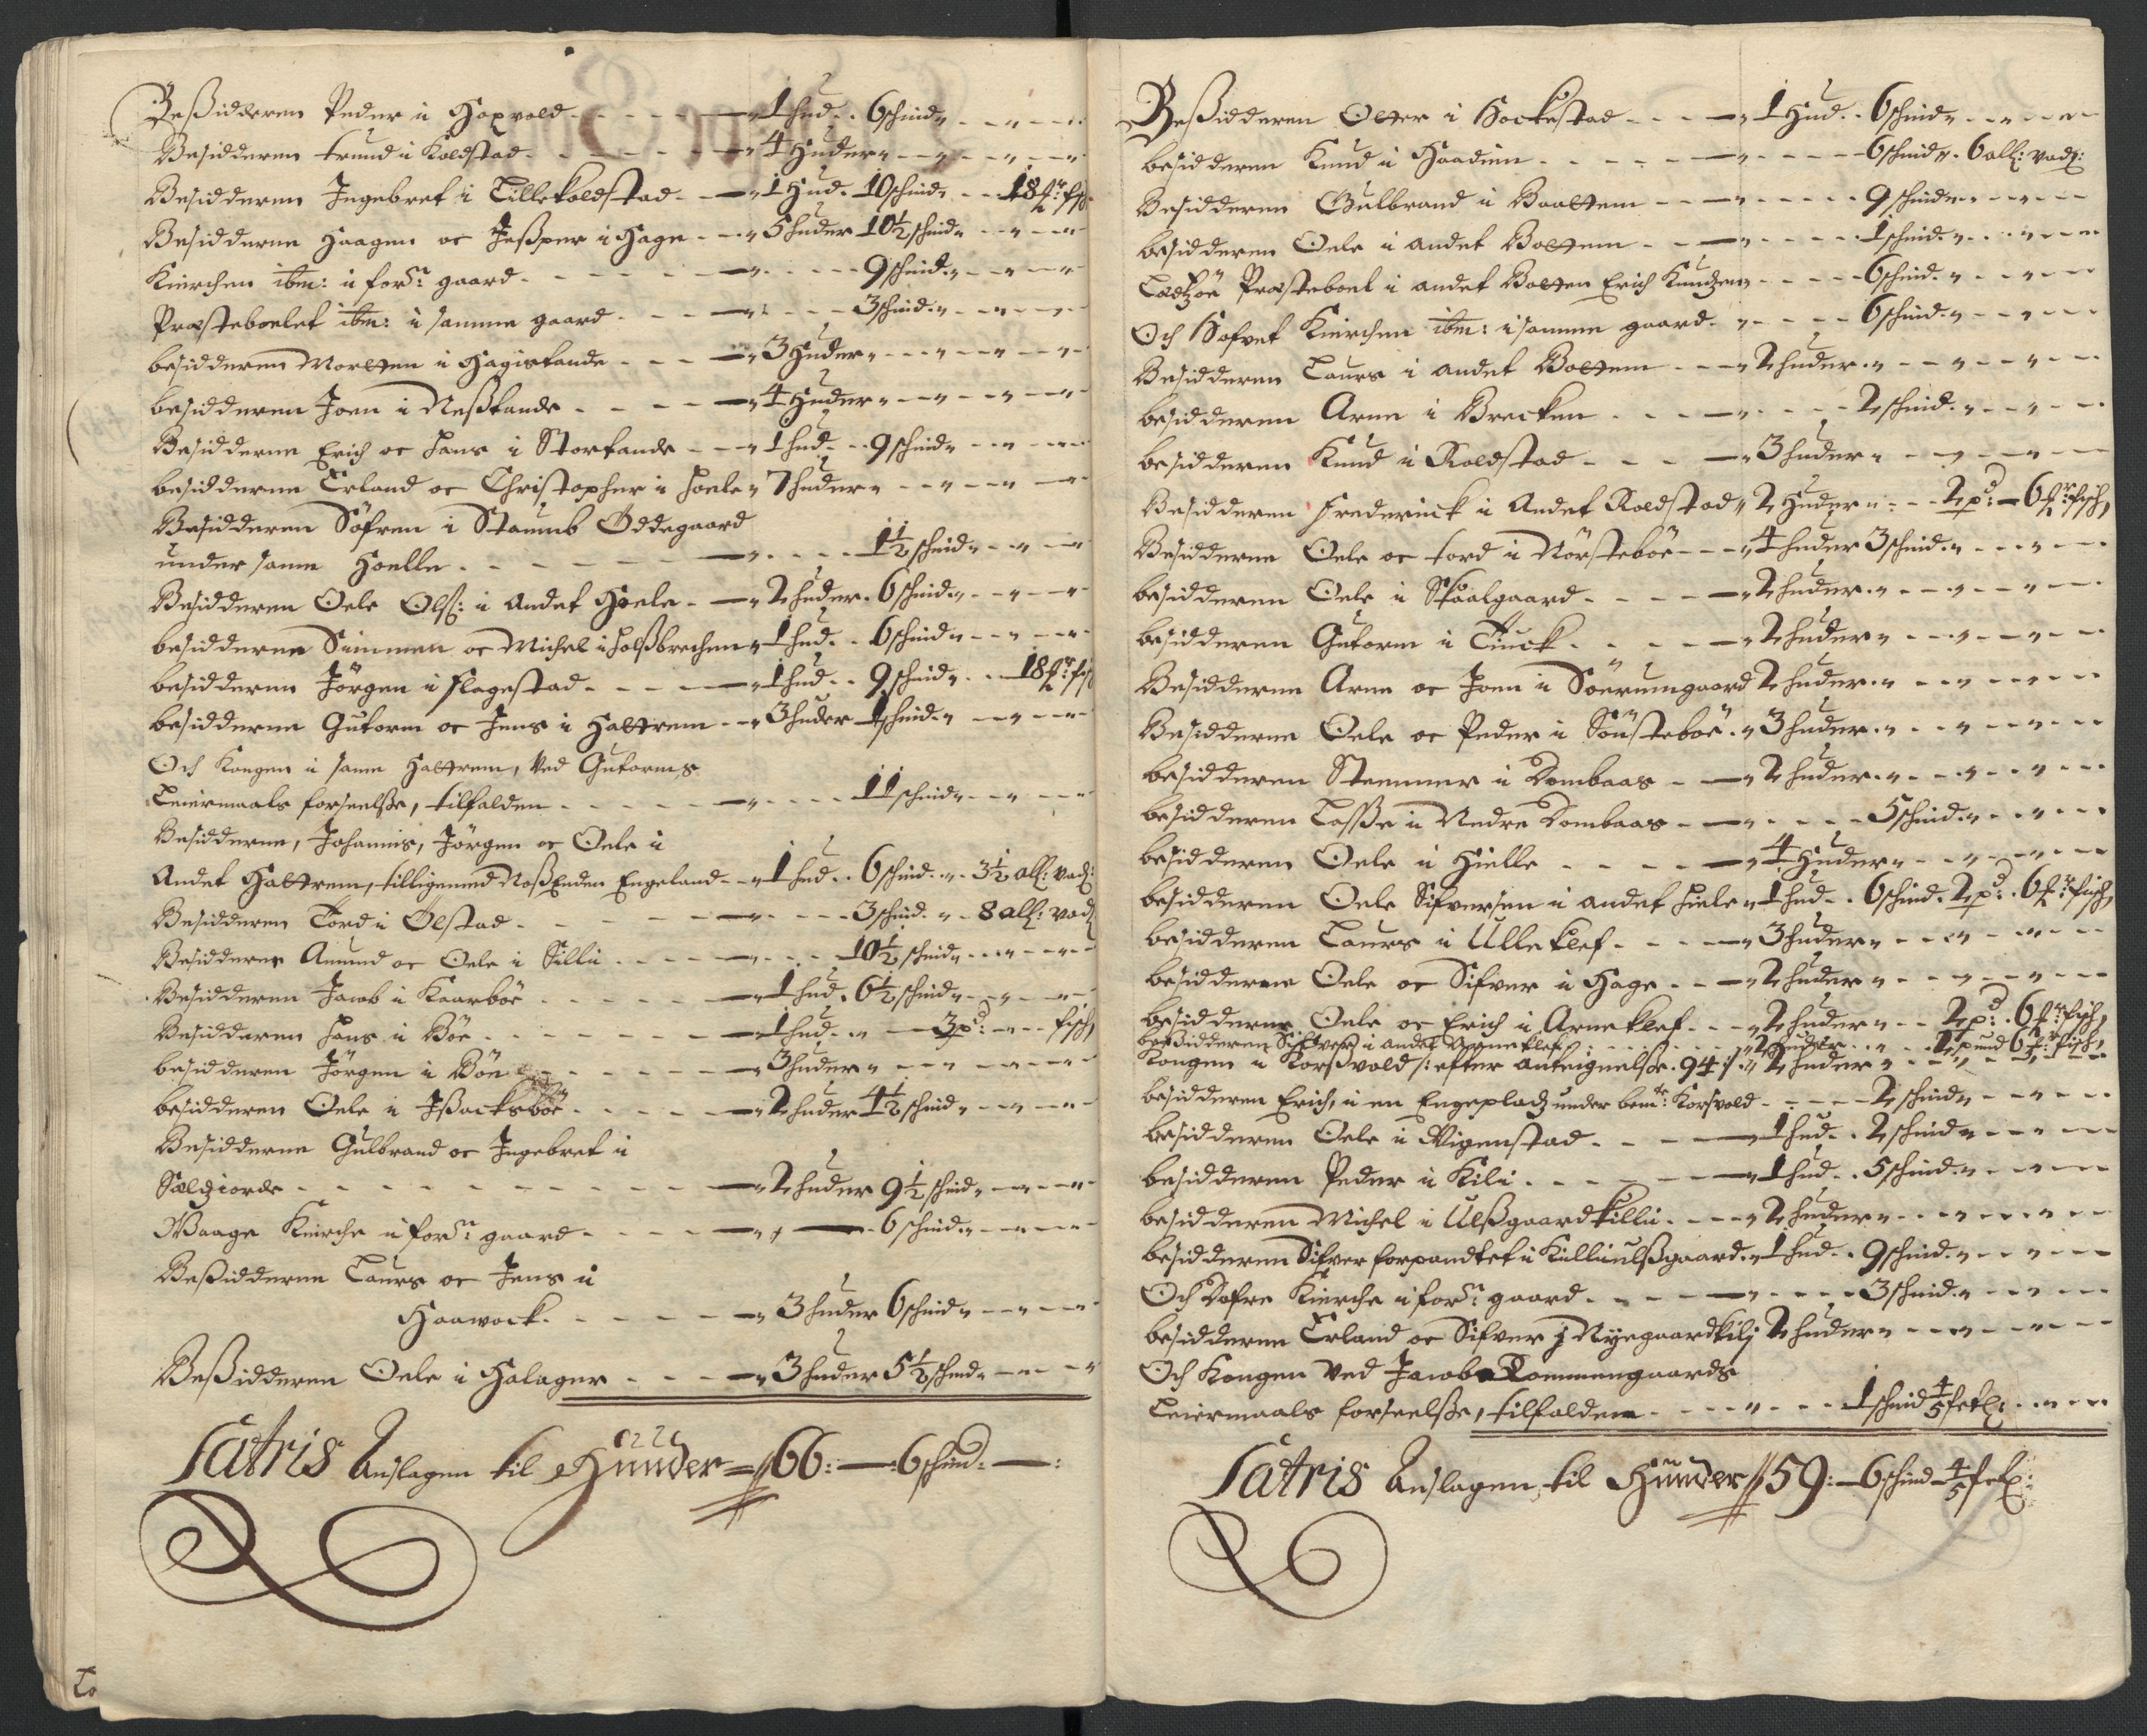 Beßidderen Peder i Hoxvold - - - - 1 hud - 6 schind
Besidderen trund i Koldstad - - - - 4 Huder
Besidderen Jngebret i Lillekoldstad - - 1 Hud - 10 schind - - 18 fr: fsch
Besidderne Haagen oc Jeßper i Hage - - 5 huder 10½ schind
Kierchen ibm: i forn: gaard - - - - 9 schind
Præsteboelet ibm: i samme gaard - - - 3 schind
besidderen Morten i Hagistande - - - 3 Huder
besidderen Joen i Neßtande - - - - 4 Huder
Besidderne Erich oc Hans i Stortande - - 1 hud - 9 schind
besidderne Erland oc Christopher i Hoele 7 huder
Besidderen Söfren i Staumb Öddegaard
under samme Hoelle - - - - 1½ schind
Besidderen Oele Olß: i Andet Hoele - - 2 huder 6 schind
besidderne Simmen oc Michel i Holßbrechen 1 hud - 6 schind
besidderen Jörgen i Flagestad - - - 1 hud - 9 schind - - 18 fr: fsch
besidderne Gutorm oc Jens i Hattrem - - 3 huder 1 schind
Och Kongen i samme Hattrem, Ved Gutorms
Leiermaals forseelße, tilfalden - - - 11 schind
Besidderne, Johannis, Jörgen oc Oele i
Andet Hattrem, tilligemed Noßenden Engeland - - 1 hud - 6 schind - 3½ all: vad:
Besidderen Tord i Ölstad - - - 3 schind - 8 all: vad:
Besidderne Amund oc Oele i Sillie - - - 10½ schind
Besidderen Jacob i Kaarböe - - - 1 hud - 6½ schind
Besidderen Hans i Böe - - - 1 hud - - 3 pd: - - fisch
besidderen Jörgen i Böe - - - 3 huder
besidderen Oele i Jßachsböe - - - 2 huder 4½ schind
Besidderne Gulbrand oc Jngebret i
Selgiorde - - - 2 huder 9½ schind
Waage Kirche i forn: gaard - - - 6 schind
Beßidderne Laurs oc Jens i
Haawock - - - 3 huder 6 schind
Beßidderen Oele i Halager - - - 3 huder 5½ schind
Latris Anslagen til Huuder 66: - 6 schind - :
Beßidderen Otter i Hockestad - - - 1 Hud - 6 schind
besidderen Knud i Haadiem - - - 6 schind - 6 all: vad:
Besidderen Gulbrand i Baattem - - - 9 schind
besidderen Oele i andet Bottem - - - 1 schind
Ledzöe Præsteboel i andet Botten Erich Knudzen - - 6 schind
Och Hofvet Kierchen ibm: i samme gaard - - 6 schind
Besidderen Laurs i andet Bottem - - 2 huder
besidderen Arne i Brecken - - - 2 schind
besidderen Knud i Roldstad - - - 3 huder
Besidderen Frederick i Andet Roldstad 2 Huder - - 2 pd: - 6 fr: fisch
Besidderne Oele oc tord i Nörsteböe - - 4 huder 3 schind
besidderen Oele i Skaalgaard - - - 2 huder
besidderen Gutorm i Tiuck - - - 2 huder
Besidderne Arne oc Joen i Söerumgaard 2 huder
Besidderne Oele oc Peder i Söusteböe - 3 huder
besidderen Stemmer i Dombaas - - 2 huder
besidderen Laße i Nedre Dombaas - - - 5 schind
besidderen Oele i Hielle - - - 4 Huder
besidderen Oele Sifversen i andet Hiele 1 hud - 6 schind - 2 pd: - 6 fr: fisch
besidderen Laurs i Ulleklef - - - 3 huder
besidderne Oele oc Sifver i Hage - - - 2 huder
besidderne Oele oc Erich i Arneklef - - 2 huder - - 2 pd: - 6 fr: fisch
beßidderen Sifver i andet Arneklef - - 2 huder - - 2 pund 6 fr: fisch
Kongen i Korßvold /: efter anteignelße - 94 :/ 2 huder
besidderen Erich, i en Engeplads under bemte: Korsvold - - 2 schind
besidderen Oele i Vigenstad - - - 1 hud - 2 schind
besidderen Peder i Kili - - - 1 hud - 5 schind
besidderen Michel i Ulßgaardkillii - - 2 huder
besidderen Sifver forpandtet i Killiulßgaard - 1 hud - 9 schind
Och Dofre Kirche i forn: gaard - - - 3 schind
besidderne Erland oc Sifver j Nyegaardkilj 2 huder
Och Kongen Ved Jacob Tommengaards
Leiermaals forseelße, tilfalden - - - 1 schind 4/5 fetl:
Latris Anslagen til Huuder 59: - 6 schind - 4/5 fetl: